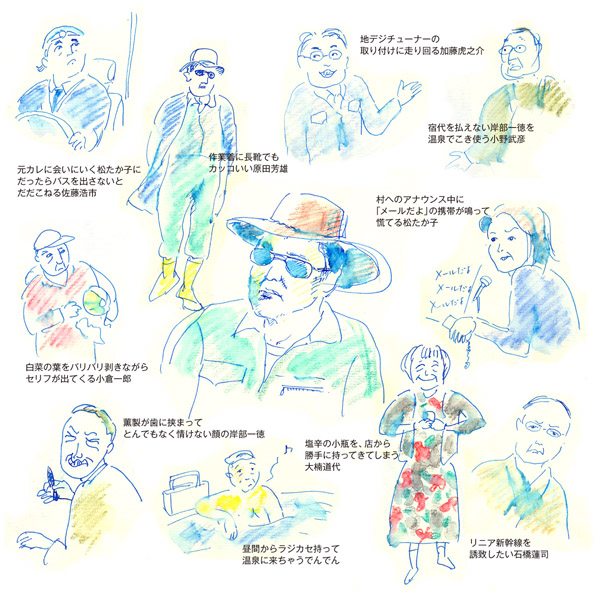 地デジチューナーの
取り付けに走り回る加藤虎之介
宿代を払えない岸部一徳を
温泉でこき使う小野武彦
元カレに会いにいく松たか子に
だったらバスを出さないと
だだこねる佐藤浩市
作業着に長靴でも
カッコいい原田芳雄
村へのアナウンス中に
「メールだよ」の携帯が鳴って
慌てる松たか子
メールだよ
メールだよ
メールだよ
白菜の葉をバリバリ剥きながら
セリフが出てくる小倉一郎
薫製が歯に挟まって
とんでもなく情けない顔の岸部一徳
塩辛の小瓶を、店から
勝手に持ってきてしまう
大楠道代
昼間からラジカセ持って
温泉に来ちゃうでんでん
リニア新幹線を
誘致したい石橋蓮司